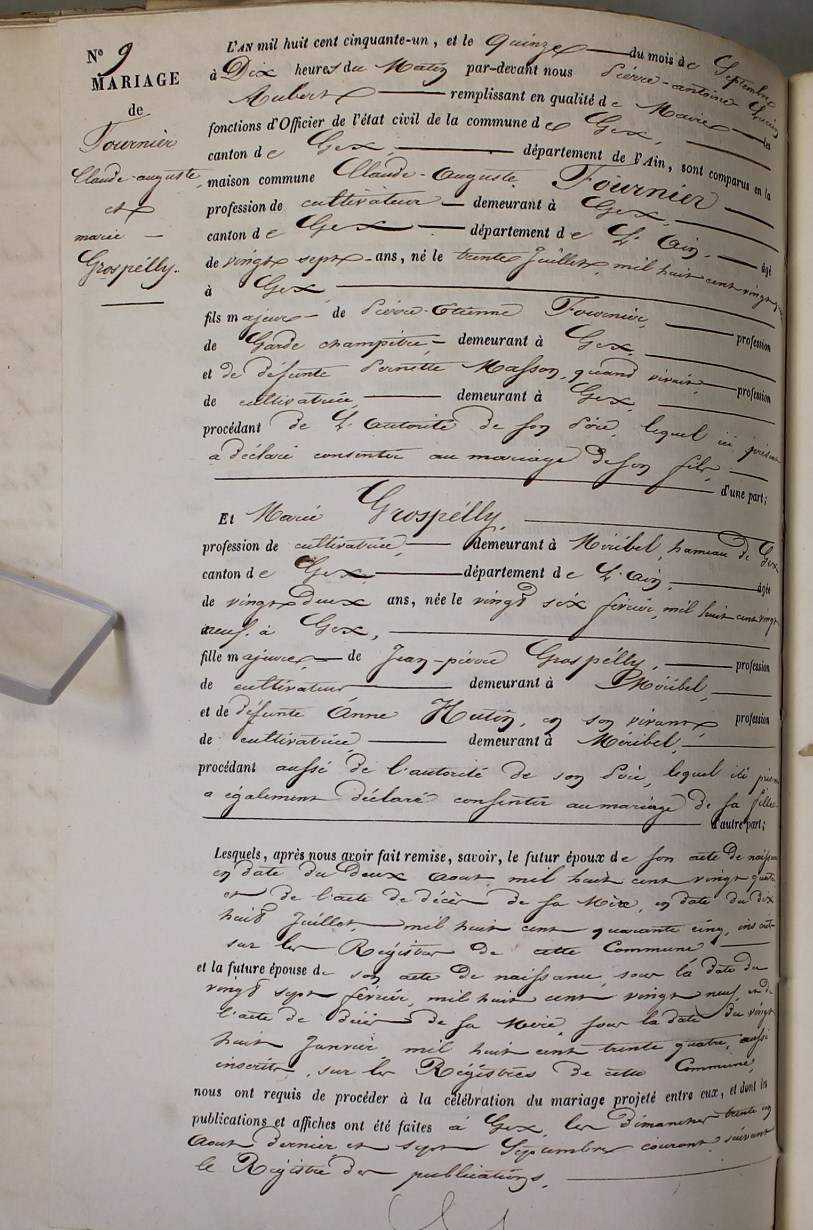 N° 9
MARIAGE
de
Fournier
Claude-auguste,
et
marie —
Grospélly.
L'AN mil huit cent cinquante-un, et le Quinze du mois de Septembre
à Dix heures du Matin par-devant nous Pierre-antoine
Aubert remplissant en qualité de Maire les
fonctions d'Officier de l'état civil de la commune de Gex,
canton de Gex, département de l'Ain, sont comparus en la
maison commune Claude-Auguste Fournier
profession de cultivateur demeurant à Gex,
canton de Gex département de L'Ain, âgé
de vingt sept ans, né le trente Juillet, mil huit cent vingt
à Gex
fils majeur de Pierre-Etienne Fournier, profession
de Garde champêtre, demeurant à Gex,
et de défunte Pernette Masson, quand vivait, profession
de cultivatrice, demeurant à Gex,
procédant de L'autorité de son Père, lequel ici présent
a déclaré consentir au mariage de son fils,
d'une part;
Et Marie Grospélly,
profession de cultivatrice, demeurant à Méribel, hameau de Gex
canton de Gex département de L'ain, âgée
de vingt deux ans, née le vingt six février, mil huit cent vingt
neuf, à Gex,
fille majeure de Jean-pierre Grospélly, profession
de cultivateur demeurant à Méribel,
et de défunte Anne Hutin, en son vivant, profession
de cultivatrice, demeurant à Méribel,
procédant aussi de l'autorité de son Père, lequel ici présent
a également déclaré consentir au mariage de sa fille
d'autre part;
Lesquels, après nous avoir fait remise, savoir, le futur époux de son acte de naissance
en date du deux Aout, mil huit cent vingt quatre
et de l'acte de décès de sa Mère, en date du dix
huit Juillet, mil huit cent quarante cinq, inscrits
sur les Registres de cette Commune
et la future épouse de son acte de naissance, sous la date du
vingt sept février, mil huit cent vingt neuf, et de
l'acte de décès de sa Mère, sous la date du vingt
huit Janvier, mil huit cent trente quatre, aussi
inscrits, sur les Régistres de cette Commune,
nous ont requis de procéder à la célébration du mariage projeté entre eux, et dont les
publications et affiches ont été faites à Gex, les dimanches trente un
Aout dernier et sept Septembre courant, suivant
le Régistre des publications.